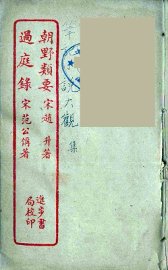 朝野類要 宋趙 升著
過庭錄 宋范公偁著
進步書
局校印
說大觀
集